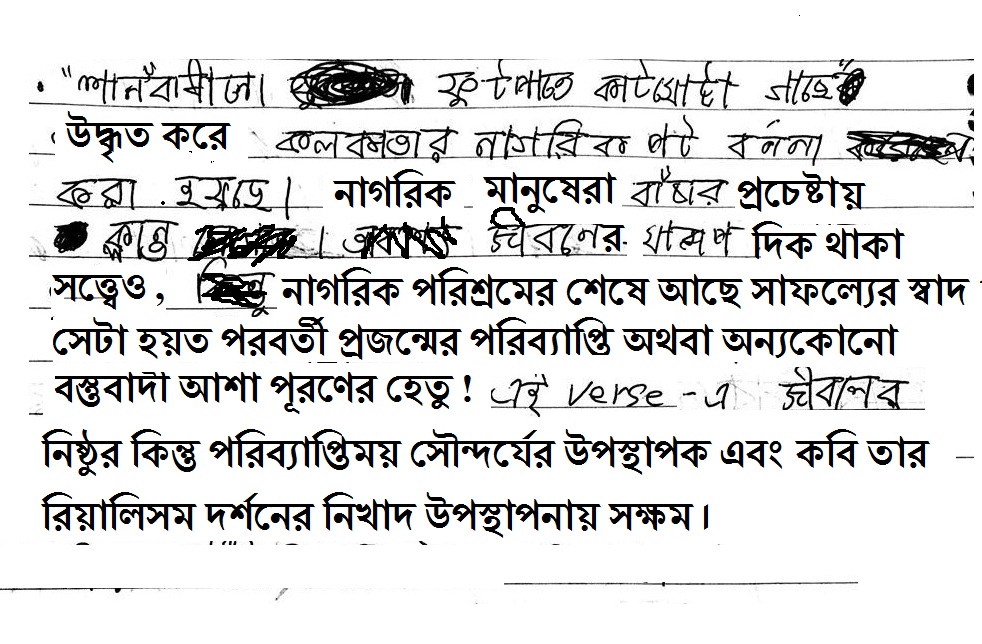 "শানবাঁধানো ফুটপাতে কাটখোট্টা গাছে"
উদ্ধৃত করে কলকাতার নাগরিক পট বর্ননা
করা হয়েছে। নাগরিক মানুষেরা বাঁচার প্রচেষ্টায়
ক্লান্ত । জীবনের খারাপ দিক থাকা
সত্ত্বেও, নাগরিক পরিশ্রমের শেষে আছে সাফল্যের স্বাদ
সেটা হয়ত পরবর্তী প্রজন্মের পরিব্যাপ্তি অথবা অন্যকোনো
বস্তুবাদী আশা পূরণের হেতু ! এই verse - এ জীবনের
নিষ্ঠুর কিন্তু পরিব্যাপ্তিময় সৌন্দর্যের উপস্থাপক এবং কবি তার
রিয়ালিসম দর্শনের নিখাদ উপস্থাপনায় সক্ষম।